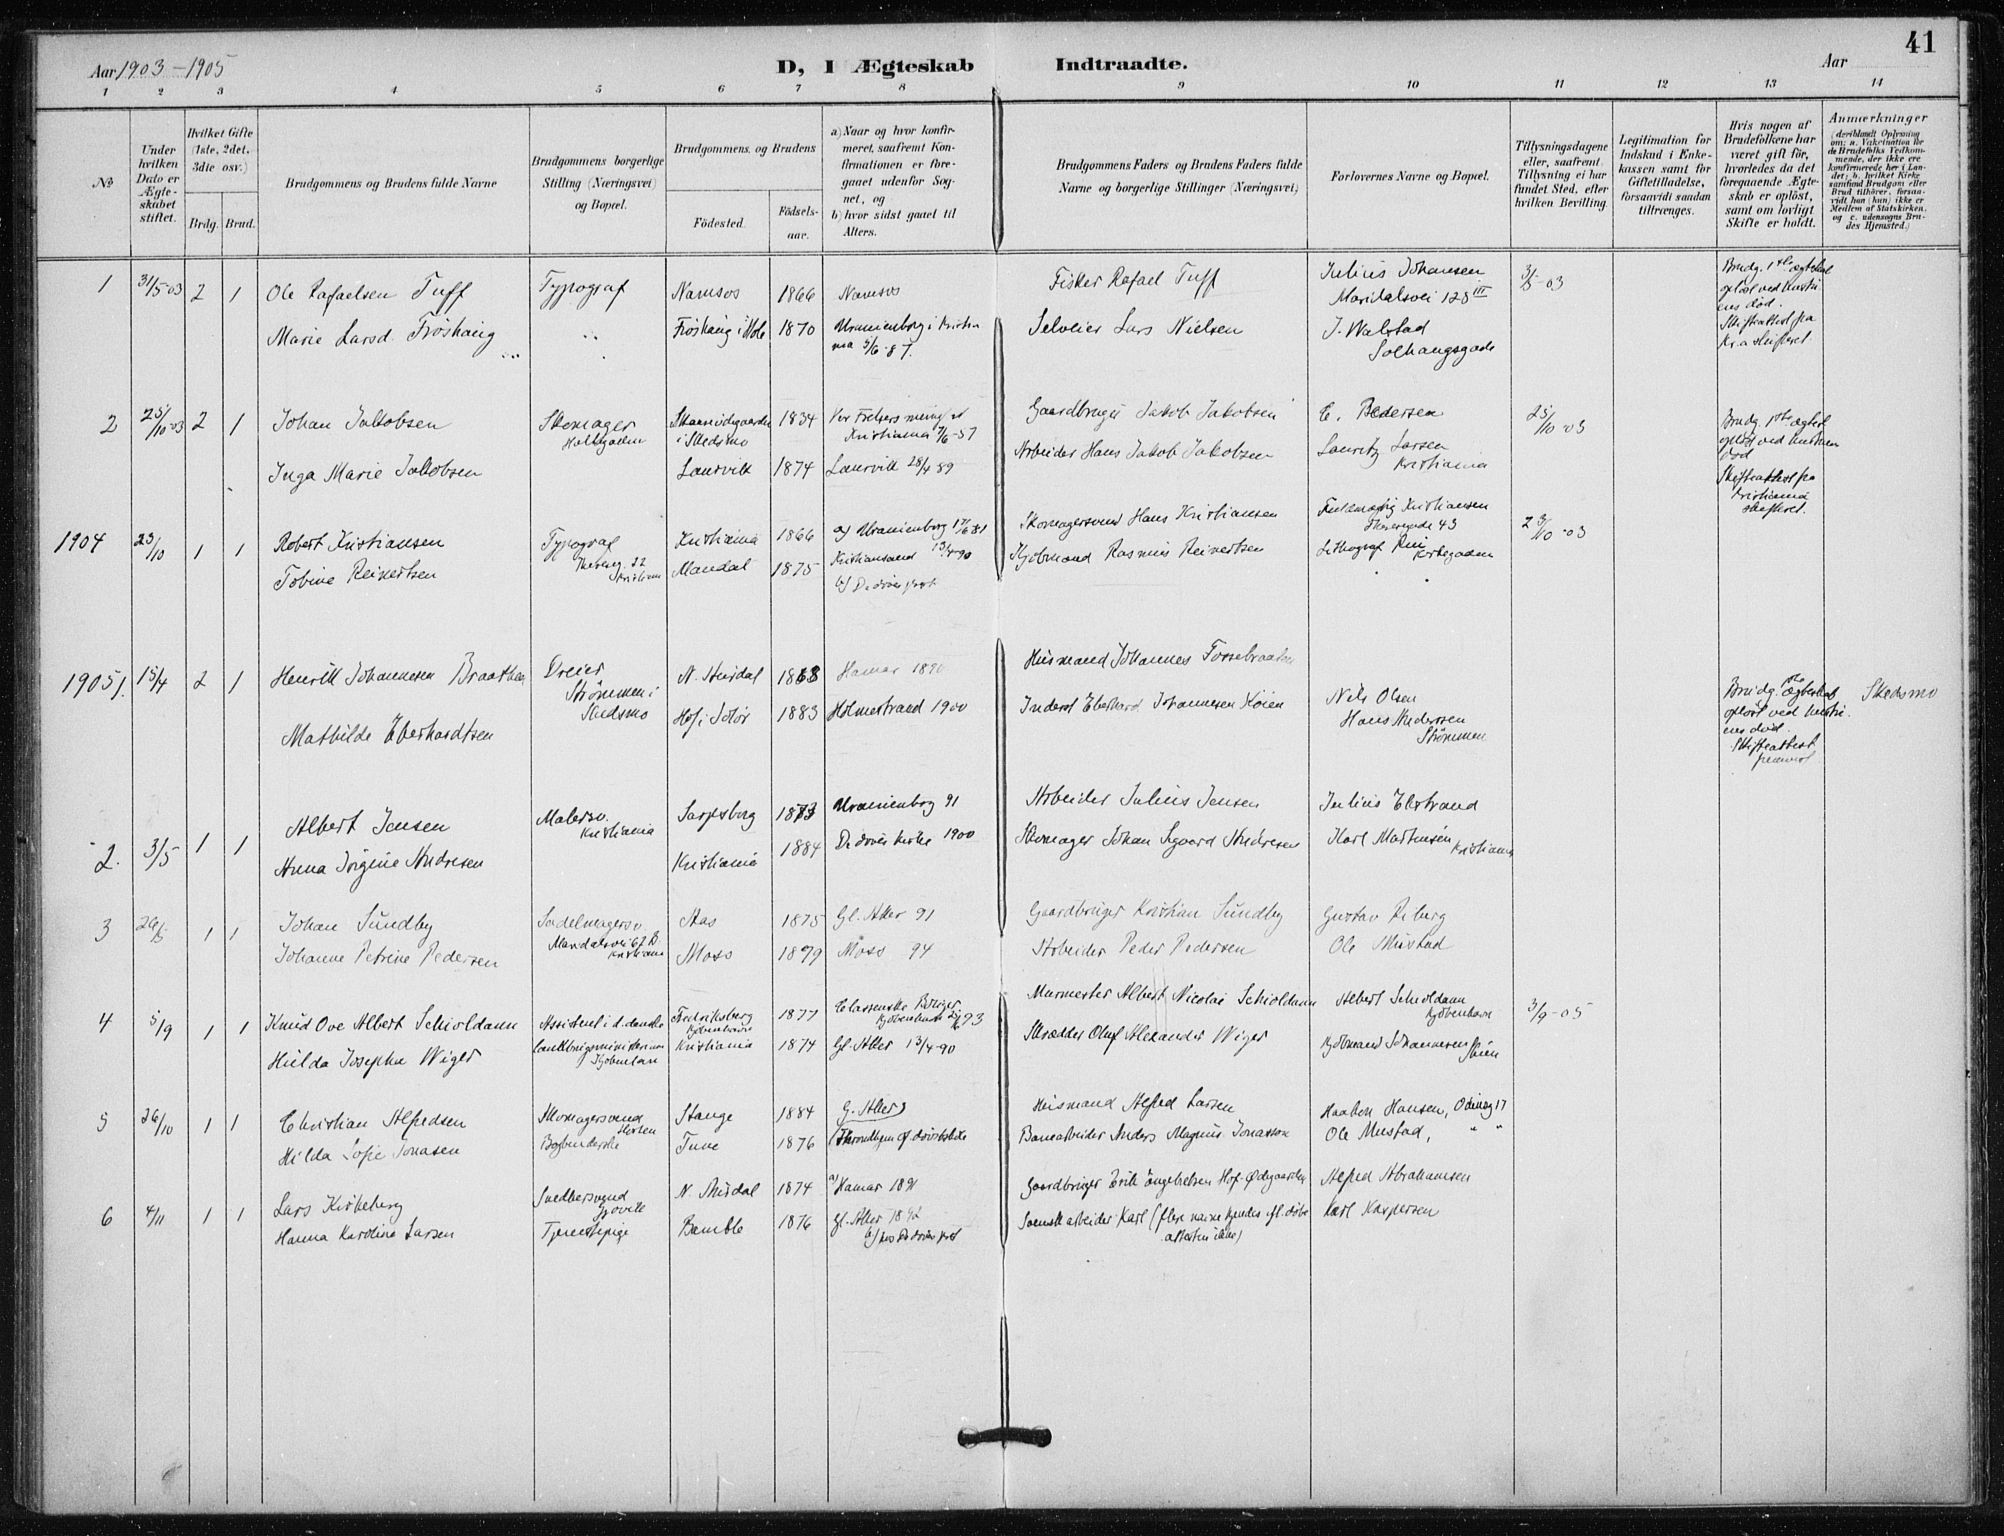 41
Aar 1903-1905
D, I Ægteskab Indtraadte.
Aar
1 2 3 4 5 6 7 8 9 10 11 12 13 14
No
Under hvilken Dato er Ægte-skabet stiftet.
Hvilket Gifte (1ste, 2det, 3die osv.)
Brdg. Brud.
Brudgommens og Brudens fulde Navne
Brudgommens borgerlige Stilling (Næringsvei) og Bopæl.
Brudgommens og Brudens
Fødested.
Fødsels-aar.
a) Naar og hvor konfir-meret, saafremt Kon-firmationen er fore-gaaet udenfor Sog-net, og
b) hvor sidst gaaet til Alters.
Brudgommens Faders og Brudens Faders fulde Navne og borgerlige Stillinger (Næringsvei)
Forlovernes Navne og Bopæl.
Tillysningsdagene eller, saafremt Tillysning ei har fundet Sted, efter hvilken Bevilling.
Legitimation for Indskud i Enke-kassen samt for Giftetilladelse, forsaavidt saadan tiltrænges.
Hvis nogen af Brudefolkene har været gift før, hvorledes da det foregaaende Ægte-skab er opløst, samt om lovligt Skifte er holdt.
Anmærkninger
(deriblandt Oplysning om: a. Vakcination for de Brudefolks Vedkom-mende, der ikke ere konfirmerede her i Lan-det; b. hvilket Kirke-samfund Brudgom eller Brud tilhører, forsaa-vidt han (hun) ikke er Medlem af Statskirken, og c. udensogns Bru-des Hjemsted.)
1 31/5-03 2 1 Ole Rafaelsen Tuff Typograf Namsos 1866 Namsos Fisker Rafael Tuff Julius Johansen
Maridalsvei 128 III
Marie Larsd. Frøshaug Frøshaug i Hole 1870 Uranienborg i Kristiania Selveier Lars Nielsen J. Walstad
Solhaugsgade
Brudg. 1ste ægteskab
opløst ved hustru
ens død.
Skifteattest fra
Kr.a skifteret.
2 25/10-03 2 1 Johan Jakobsen Skomager 1834 Gaardbruger Jakob Jakobsen E. Pedersen 25/10-03
i Skedsmo Kristiania
Inga Marie Jakobsen Laurvik 1874 Laurvik 28/4 89 Arbeider Hans Jakob Jakobsen Lauritz Larsen
Kristiania
Skifteattest fra
Kristiania
skifteret.
1904 23/10 1 1 Robert Kristiansen Typograf Kristiania 1866 a) Uranienborg Skomagersvend Hans Kristiansen Kristiansen
Tobine Reinertsen Mandal 1875 Kristiansand Kjøbmand Rasmus Reinertsen Lithograf
b) De døves prest
1905 1. 15/4 2 1 Henrik Johannesen Braathen Dreier N. Aurdal 1868 Hamar 1890 Husmand Johannes Fossebraaten
Strømmen i
Skedsmo
Mathilde Eberhardtsen Hof i Solør 1883 Holmestrand 1900 Inderst Eberhard Johannesen Køien Nils Olsen
Hans Anderssen
Strømmen
Brudg. 1ste ægteskab
opløst ved hustru
ens død.
Skifteattest
Skedsmo
2. 3/5 1 1 Albert Jensen Malersv. Kristiania Sarpsborg 1873 Uranienborg 91 Arbeider Julius Jensen Julius Ekstrand
Anna Jørgine Andresen Kristiania 1884 De døves kirke 1900 Skomager Johan Sigvard Andresen Karl Martinsen
Kristiania
3 26/5 1 1 Johan Sundby Sadelmagersv. Aas 1875 Gl. Aker 91 Gaardbruger Kristian Sundby Gustav Piberg
Maridalsvei 67 B. Kristiania
Johanne Petrine Pedersen Moss 1879 Moss 94 Arbeider Peder Pedersen Ole Mustad
4 5/9 1 1 Knud Ove Albert Schioldann Assistent i d. danske Fredriksberg Kjøbenhavn 1877 Murmester Albert Nicolai Schioldann Albert Schioldann Kjøbenhavn 3/9-05
Hilda Josepha Wiger Kjøbenhavn Kristiania 1874 Gl. Aker 13/4-90 Skrædder Oluf Alexander Wiger Kjøbmand Johannesen
Skien
5 26/10 1 1 Christian Alfredsen Skomagersvend Horten Stange 1884 G. Aker Husmand Alfred Larsen Haakon Hansen, Odinsg 17
Hilda Sofie Jonasen Bogbinderske Tune 1876 Banearbeider Anders Magnus Jonasson Ole Mustad, " "
6 4/11 1 1 Lars Kirkeberg Snedkersvend Gjøvik N. Aurdal 1874 a) Hamar 1891 Gaardbruger Erik Engebretsen Hof-Ødegaarden Alfred Abrahamsen
Hanna Karoline Larsen Tjenestepige Bamble 1876 Gl. Aker 1892
b) hos De døves prest Svensk arbeider Karl (flere navne kjendes ifl. døbe
attesten ikke) Karl Kaspersen